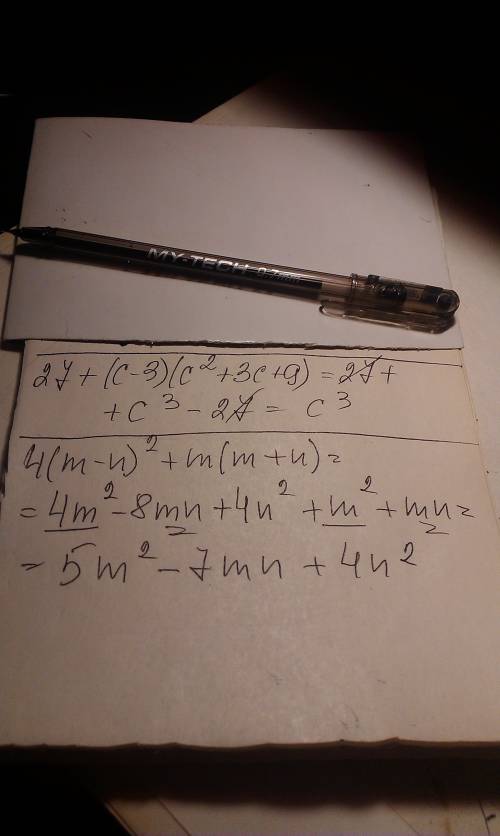 MY-TECH 0.7mm
27 + (c-3)(c²+3c+9) = 27 +
+ c³ - 27 = c³
4(m-n)² + m(m+n) =
= 4m² - 8mn + 4n² + m² + mn =
= 5m² - 7mn + 4n²